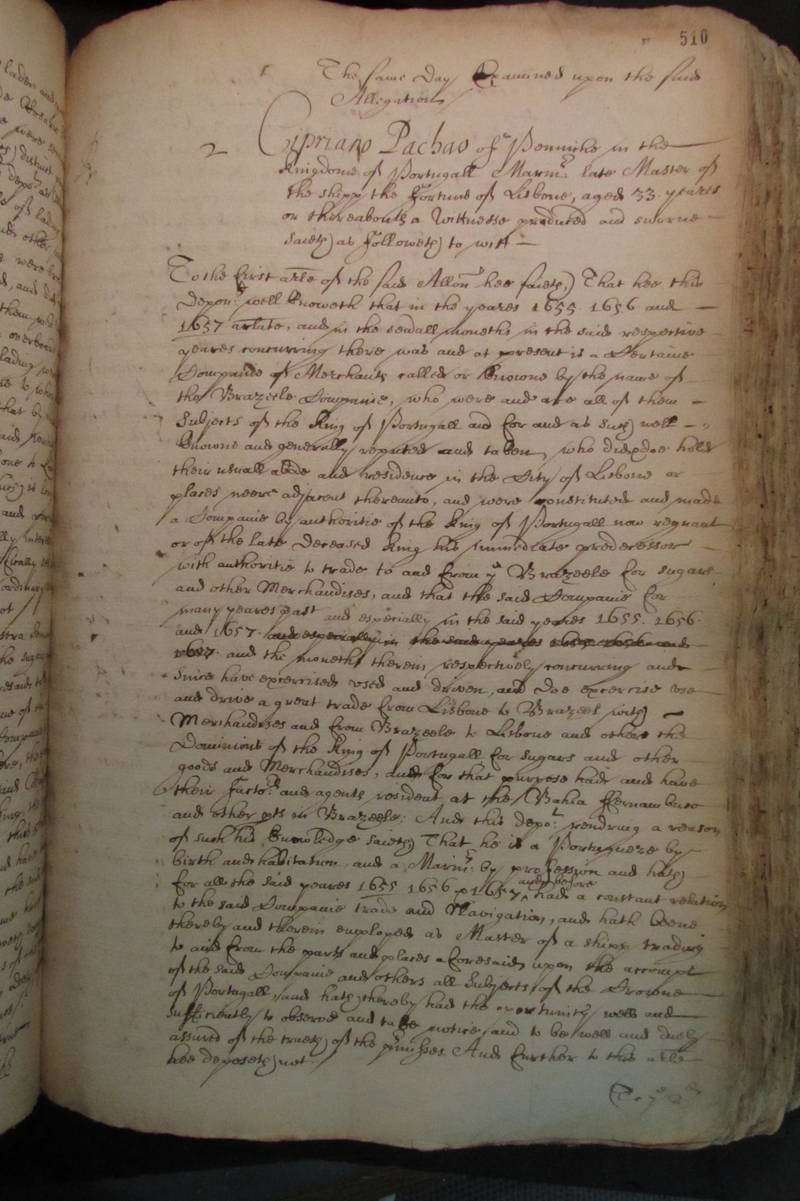 510
The same day Examined upon the said
Allegation
2 Cipriano Pachao of Penniche in the
Kingdome of Portugall Marin:r late Master of
the shipp the Fortune of Lisbone, aged 33 yeares
or thereabouts a Wittnesse produced and sworne
saieth as followeth to witt
To the first arle of the said Allon hee saieth, That hee this
depon:t well knoweth that in the yeares 1655 1656 and
1657 arlate, and in the severall moneths in the said respective
yeares concurring there was and at present is a Certaine
Companie of Merchants called or knowne by the name of
the Brazeele Companie, who were and are all of them
Subjects of the King of Portugall and for and as such well
knowne and generally reputed and taken, who did and doe hold
their usuall abode and residence in the City of Lisbone or
places neere adjacent thereunto, and were constituted and made
a Companie by authoritie of the King of Portugall now regnant
or of the late deceased King his immediate predecessor
with authoritie to trade to and from ye Brazeele for sugars
and other Merchandises, and that the said Companie for
many yeares past and especially in the said yeares 1655. 1656
and 1657 and especially in the said yeares 1655 1656 and
1657. and the moneths therein respectively concurring and
since have exercised used and driven, and doe exercise use
and drive a great trade from Lisbone to Brazeel with
Merchandises and from Brazeele to Lisbone and others the
Dominions of the King of Portugall for sugars and other
goods and Merchandises, and for that purpose had and have
their Factors and agents resident at the Bahia Fernambuco
and other pts in Brazeele; And this depo:t rendring a reason
of such his knowledge saieth That he is a Portugueze by
birth and habitation and a Marin:r by profession and hath
for all the said yeares 1655 1656 & 1657 and before had a constant relation
to the said Companie trade and Navigation, and hath beene
thereby and therein employed as Master of a shipp trading
to and from the parts and places aforesaid upon the accompt
of the said Companie and others all Subjects of the Crowne
of Portugall, and hath thereby had the oportunity well and
sufficiently to observe and take notice and to be well and duely
assured of the trueth of the premisses. And further to this arle
hee deposeth not
To ye 2d